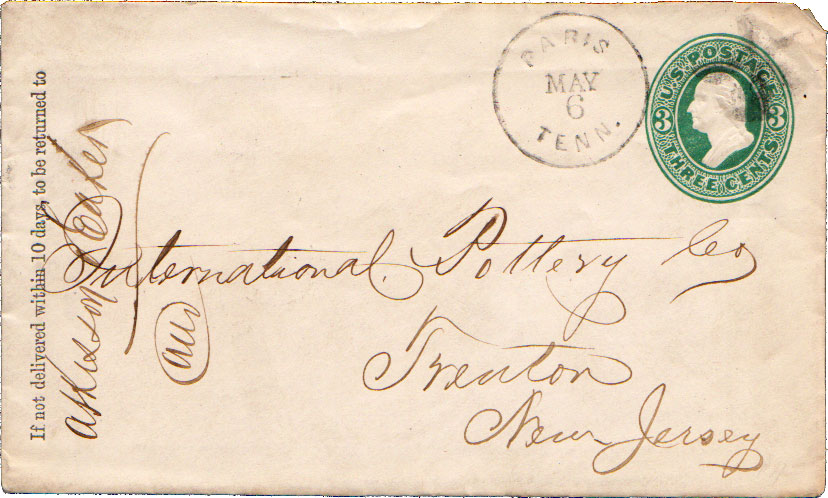 If not delivered within 10 days, to be returned to
PARIS
MAY
6
TENN.
U.S. POSTAGE
3 3
THREE CENTS
International Pottery Co
Trenton
New Jersey